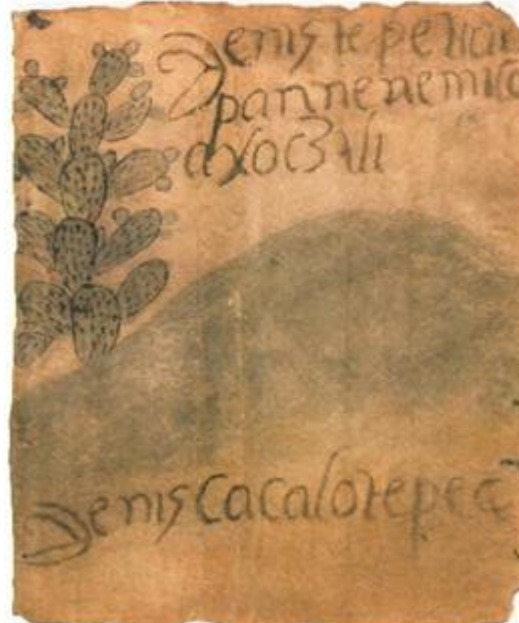 Jenis tepeticia
ypannenemico
axoctli
Jenis Cacalotepec